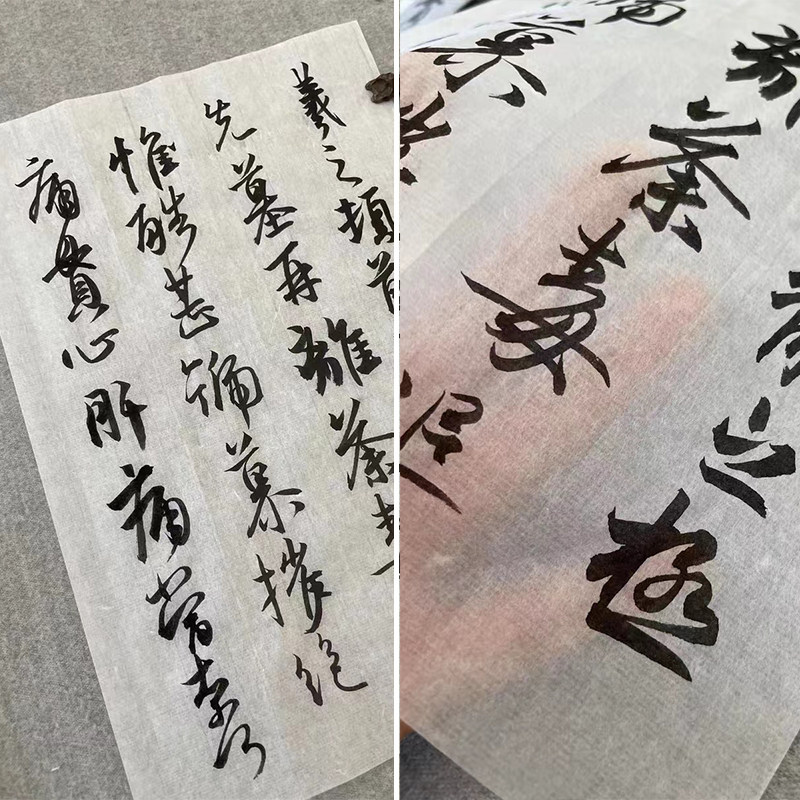 羲之頓首
先墓再離荼毒
惟酷甚號慕摧絕
痛貫心肝痛當奈何
之極
荼毒追
慕